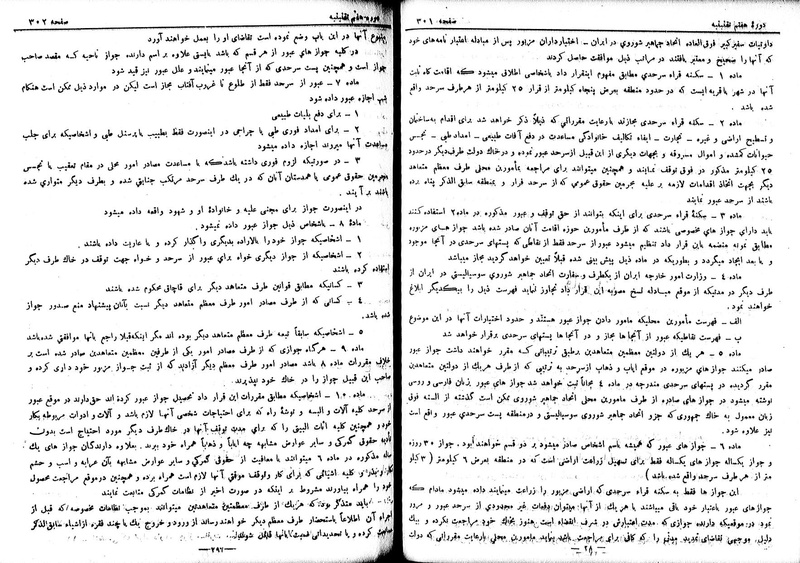 دورهٔ هفتم تقنینیه
صفحه ۳۰۱
داوتیان سفیر کبیر فوق‌العاده اتحاد جماهیر شوروی در ایران ـ اختیارداران مزبور پس از مبادله اعتبار نامه‌های خود
که آنها را صحیح و معتبر یافتند در مراتب ذیل موافقت حاصل کردند
ماده ۱ ـ سکنه قراء سرحدی مطابق مفهوم اینقرار داد باشخاصی اطلاق میشود که اقامت گاه ثابت
آنها در شهر یا قریه ایست که در حدود منطقه بعرض پنجاه کیلومتر از قرار ۲۵ کیلومتر از هر طرف سرحد واقع
شده باشد .
ماده ۲ ـ سکنه قراء سرحدی مجازند با رعایت مقرراتی که ذیلاً ذکر خواهد شد برای اقدام بساختمان
و تسطیح اراضی و غیره ـ تجارت ـ ایفاء تکالیف خانوادگی مساعدت در دفع آفات طبیعی ـ امداد طبی ـ تجسس
حیوانات گمشده و اموال مسروقه و بجهات دیگری از این قبیل از سرحد عبور نموده و در خاک دولت طرف دیگر در حدود
۲۵ کیلومتر مذکور در فوق توقف نمایند و همچنین میتوانند برای مراجعه بمأمورین محلی طرف معظم متعاهد
دیگر بجهت اتخاذ اقدامات لازمه بر علیه مجرمین حقوق عمومی که از سرحد فرار و بمنطقه سابق الذکر پناه برده
باشند از سرحد عبور نمایند
ماده ۳ ـ سکنهٔ قراء سرحدی برای اینکه بتوانند از حق توقف و عبور مذکوره در ماده ۲ استفاده کنند
باید دارای جواز های مخصوصی باشند که از طرف مأمورین حوزه اقامت آنان صادر شده باشد جواز های مزبوره
مطابق نمونه منضمه باین قرار داد تنظیم میشود عبور از سرحد فقط از نقاطی که پستهای سرحدی در آنجا موجود
و یا بعد ایجاد میگردد و بطوریکه در ماده ذیل پیش بینی شده قبلاً تعیین خواهد گردید مجاز میباشد
ماده ٤ ـ وزارت امور خارجه ایران از یکطرف و سفارت اتحاد جماهیر شوروی سوسیالیستی در ایران از
طرف دیگر در مدتیکه از موقع مبادله نسخ مصوبه این قرار داد تجاوز نماید فهرست ذیل را بیکدیگر ابلاغ
خواهند نمود .
الف ـ فهرست مأمورین محلیکه مامور دادن جواز عبور هستند و حدود اختیارات آنها در این موضوع
ب ـ فهرست نقاطیکه عبور از آنجا ها مجاز و در آنجا ها پستهای سرحدی برقرار خواهد شد
ماده ٥ ـ هر یک از دولتین معظمتین متعاهدین مطابق ترتیباتی که مقرر خواهند داشت جواز عبور
صادر میکنند جواز های مزبوره در موقع ایاب و ذهاب از سرحد به ترتیبی که از طرف هر یک از دولتین متعاهدتین
مقرر گردیده در پستهای سرحدی مندرجه در ماده ٤ مجاناً ثبت خواهد شد جواز های عبور بزبان فارسی و روسی
نوشته میشود در جواز های صادره از طرف مامورین محلی اتحاد جماهیر شوروی ممکن است گذشته از السنه فوق
زبان معمول به خاک جمهوری که جزو اتحاد جماهیر شوروی سوسیالیستی و در منطقه پست سرحدی عبور واقع است
نیز علاوه شود .
ماده ٦ ـ جواز های عبور که همیشه باسم اشخاص صادر میشود بر دو قسم خواهند بود . جواز ۳۰ روزه
و جواز یکساله جواز های یکساله فقط برای تسهیل زراعت اراضی است که در منطقه بعرض ٦ کیلومتر ( ۳ کیلو
متر از هر طرف سرحد واقع شده باشد )
این جواز ها فقط به سکنه قراء سرحدی که اراضی مزبور را زراعت مینمایند داده میشود مادام که
جواز های عبور باعتبار خود باقی میباشند با هر یک از آنها میتوان بدفعات غیر محدودی از سرحد عبور و مرور
نمود در موقعیکه دارنده جوازی که مدت اعتبارش در شرف انقضاء است هنوز بخاک خود مراجعت نکرده و بیک
دلیل موجهی تقاضای تمدید مدتی را که کافی برای مراجعت باشد بنماید مامورین محلی با رعایت مقرراتی که دولت
دوره هفتم تقنینیه
صفحه ۳۰۲
متبوع آنها در این باب وضع نموده است تقاضای او را بعمل خواهند آورد
در کلیه جواز های عبور از هر قسم که باشد بایستی علاوه بر اسم دارنده جواز ناحیه که مقصد صاحب
جواز است و همچنین پست سرحدی که از آنجا عبور مینمایند و علل عبور نیز قید شود
ماده ۷ ـ عبور از سرحد فقط از طلوع تا غروب آفتاب مجاز است لیکن در موارد ذیل ممکن است هنگام
شب اجازه عبور داده شود
۱ ـ برای دفع بلیات طبیعی
۲ ـ برای امداد فوری طبی یا جراحی در اینصورت فقط بطبیب یا پرسنل طبی و اشخاصیکه برای جلب
مساعدت آنها میروند اجازه داده میشود
۳ ـ در صورتیکه لزوم فوری داشته باشد که با مساعدت مصادر امور محلی در مقام تعقیب یا تجسس
مجرمین حقوق عمومی یا همدستان آنان که در یک طرف سرحد مرتکب جنایتی شده و بطرف دیگر متواری شده
باشند بر آیند .
در اینصورت جواز برای مجنی علیه و خانوادهٔ او و شهود واقعه داده میشود
ماده ۸ ـ باشخاص ذیل جواز عبور داده نمیشود .
۱ ـ اشخاصیکه جواز خود را بالاراده بدیگری واگذار کرده و یا عاریت داده باشند .
۲ ـ اشخاصیکه از جواز دیگری خواه برای عبور از سرحد و خواه جهت توقف در خاک طرف دیگر
استفاده کرده باشند
۳ ـ کسانیکه مطابق قوانین طرف متعاهد دیگر برای قاچاق محکوم شده باشند
٤ ـ کسانی که از طرف مصادر امور طرف معظم متعاهد دیگر نسبت بآنان پیشنهاد منع صدور جواز
شده باشد .
٥ ـ اشخاصیکه سابقاً تبعه طرف معظم متعاهد دیگر بوده اند مگر اینکه قبلا راجع بانها موافقتی شده باشد
ماده ۹ ـ هر گاه جوازی که از طرف مصادر امور یکی از طرفین معظمین متعاهدین صادر شده است بر
خلاف مقررات ماده ۸ باشد مصادر امور طرف معظم متعاهد دیگر آزادند که از ثبت جواز مزبور خود داری کرده و
صاحب این قبیل جواز را در خاک خود نپذیرند .
ماده ۱۰ ـ اشخاصیکه مطابق مقررات این قرار داد تحصیل جواز عبور کرده اند حق دارند در موقع عبور
از سرحد کلیه آلات و البسه و توشهٔ راه که برای احتیاجات شخصی آنها لازم باشد و آلات و ادوات مربوطه بکار
خود و همچنین کلیه اثاث البیتی را که برای مدت توقف آنها در خاک طرف دیگر مورد احتیاج است بدون
تأدیه حقوق گمرکی و سایر عوارض مشابهه چه ایاباً و ذهاباً همراه خود ببرند . بعلاوه دارندگان جواز های یک
ساله مذکوره در ماده ٦ میتوانند با معافیت از حقوق گمرکی و سایر عوارض مشابهه بآن عرابه و اسب و حشم
کاری و بذر و کلیه اشیائی که برای کار و توقف موقتی آنها لازم است همراه برده و همچنین در موقع مراجعت محصول
خود را همراه بیاورند مشروط بر اینکه در صورت اخیر از نظامات گمرکی متابعت نمایند
باید متذکر بود که هر یک از طرفین معظمتین متعاهدتین میتوانند بموجب نظامات مخصوصه که قبل از
اجراء آن اطلاعاً باستحضار طرف معظم دیگر خواهند رساند از ورود و خروج یک یا چند فقره از اشیاء سابق الذکر
ممانعت کرده و یا تحدیداتی نسبت بانها قائل شوند
ـ ۲۹۷ ـ